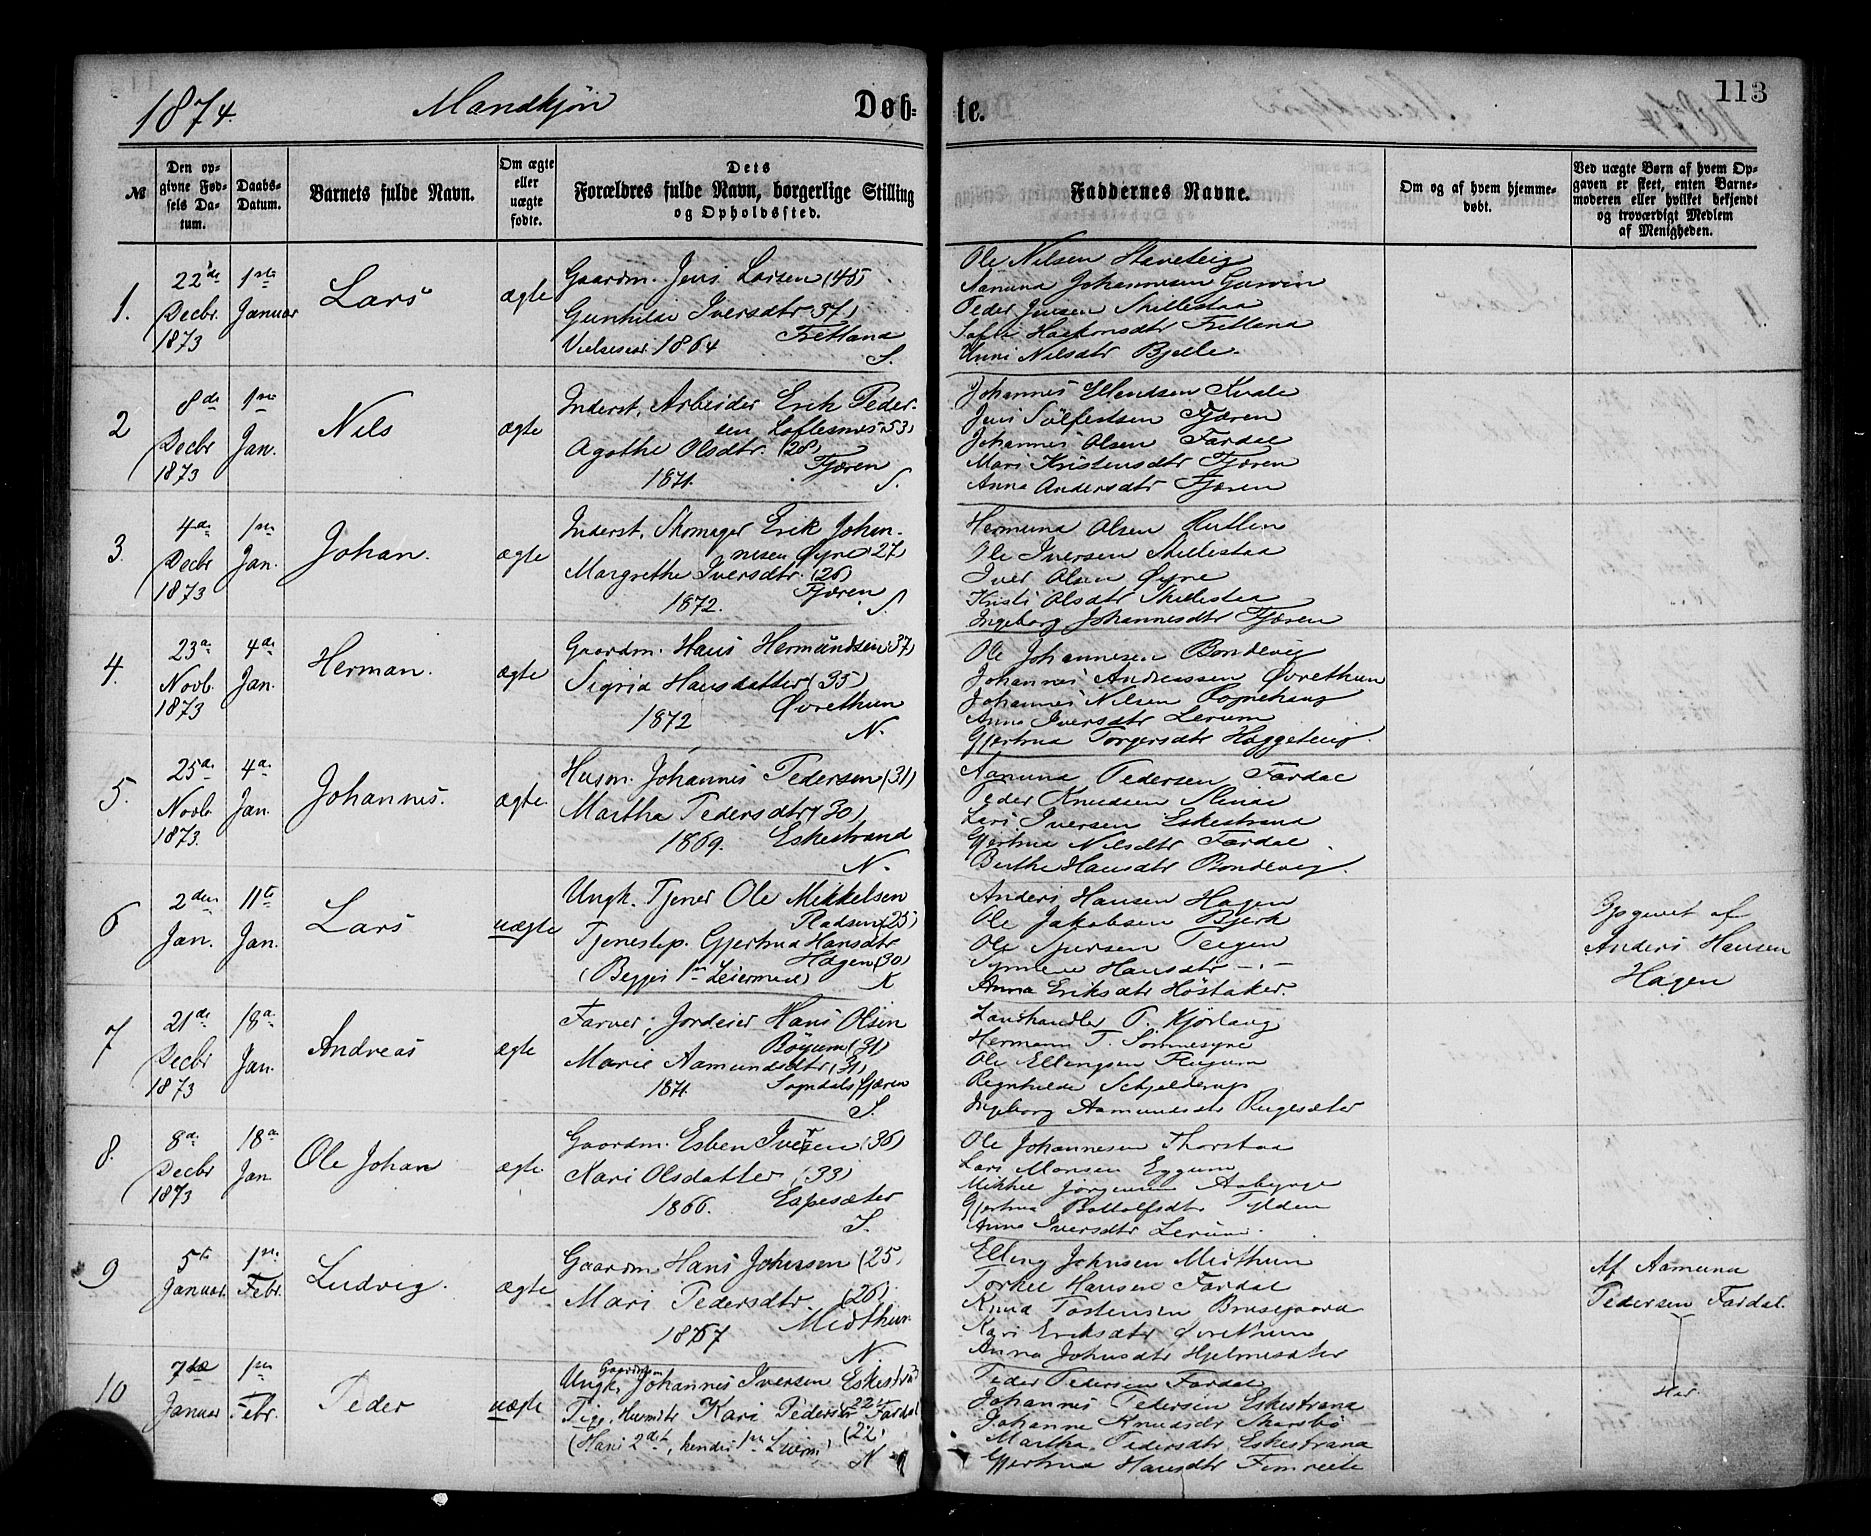 113
1874.
Mandkjön
Døb-
te.
№
Den op-
givne Fød-
sels Da-
tum.
Daabs-
Datum.
Barnets fulde Navn.
Om ægte
eller
uægte
fødte.
Dets
Forældres fulde Navn, borgerlige Stilling
og Opholdssted.
Faddernes Navne.
Om og af hvem hjemme-
døbt.
Ved uægte Børn af hvem Op-
gaven er skeet, enten Barne-
moderen eller hvilket bekjendt
og troværdigt Medlem
af Menigheden.
1.
22de
Decbr.
1873
1ste
Januar
Lars
ægte
Gaardm. Jens Larsen (45)
Gunhilde Iversdtr 37)
Vielsesaar 1864 Fretland
S.
Ole Nilsen Steneteig
Aamund Johannesen Gurvin
Peder Jensen Skillestad
Haakonsdtr Fretland
Nilsdtr Bjelle.
2
8de
Decbr
1873
1ste
Jan.
Nils
ægte
Inderst, Arbeider Erik Peder-
sen Loftesnes 53)
Agathe Olsdtr. (28)
1871. Fjæren
S.
Johannes Ellendsen Kvale
Jens Sølfestsen Fjæren
Johannes Olsen Fardal
Mari Kristensdtr Fjæren
Anna Andersdtr Fjæren
3.
4de
Decbr
1873
1ste
Jan.
Johan.
ægte
Inderst, Skomager Erik Johan-
nesen Øyre 27)
Margrethe Iversdtr. (26)
1872. Fjæren
S.
Hermund Olsen Rutlin
Ole Iversen Skillestad
Iver Olsen Øyre
Kristi Olsdtr Skillestad
Ingeborg Johannesdtr Fjæren
4.
23de
Novb.
1873
4de
Jan.
Herman.
ægte
Gaardm. Hans Hermundsen 37)
Sigrid Hansdatter (35)
1872 Øvrethun
N.
Ole Johannesen Bondevig
Johannes Andreassen Øvrethun
Johannes Nilsen Rognehaug
Anna Iversdtr Lerum
Gjertrud Torgersdtr Haggeteig.
5.
25de
Novb
1873.
4de
Jan.
Johannes.
ægte
Husm. Johannes Pedersen (31)
Martha Pedersdtr (30)
1869. Eskestrand
N.
Aamund Pedersen Fardal
Peder Knudsen Slinde
Lars Iversen Eskestrand
Gjertrud Nilsdtr Fardal
Berthe Hansdtr Bondevig.
6
2den
Jan.
11te
Jan.
Lars
uægte
Ungk. Tjener Ole Mikkelsen
Pladsen (25)
Tjenestep. Gjertrud Hansdtr
Hagen (30)
(Begges 1ste Leiermaal) K
Anders Hansen Hagen
Ole Jakobsen Bjerk
Ole Sjursen Teigen
Hansdtr -"-
Anna Eriksdtr Høstaker.
Opgivet af
Anders Hansen
Hagen
7
21de
Decbr
1873
18de
Jan.
Andreas
ægte
Farver, Jordeier Hans Olsen
Böyum (31)
Marie Aamundsdtr (31)
1871. Sogndalsfjæren
S.
Landhandler P. Kjørlaug
Hermann T. Sømmesyne
Ole Ellingsen Flugum
Regnhilde Schjelderup
Ingeborg Aamundsdtr Rugesæter
8.
8de
Decbr
1873
18de
Jan
Ole Johan
ægte
Gaardm. Esben Iversen (36)
Kari Olsdatter (33)
1866. Espesæter
S.
Ole Johannesen Thorstad
Lars Monsen Eggum
Mikkel Jørgensen Aabjørge
Gjertrud Bottolfsdtr Tylden
Anna Iversdtr Lerum.
9
5te
Januar.
1ste
Febr.
Ludvig.
ægte
Gaardm Hans Johnsen (25)
Mari Pedersdtr. (26)
1867 Midthun.
N
Elling Johnsen Midthun
Torkel Hansen Fardal
Knud Tostensen Brusegaard
Kari Eriksdtr Øvrethun
Anna Johnsdtr Hjelmesæter
Af Aamund
Pedersen Fardal.
10
7de
Januar
1ste
Febr.
Peder
uægte
Ungk. Johannes Iversen Eskestrand
Pige, Husmdtr Kari Pedersdtr Fardal
(22)
(Hans 2det, hendes 1ste Leierm)
N
Peder Pedersen Fardal
Johannes Pedersen Eskestrand
Johanne Knudsdtr Skarsbø
Martha Pedersdtr Eskestrand
Gjertrud Hansdtr Fimreite